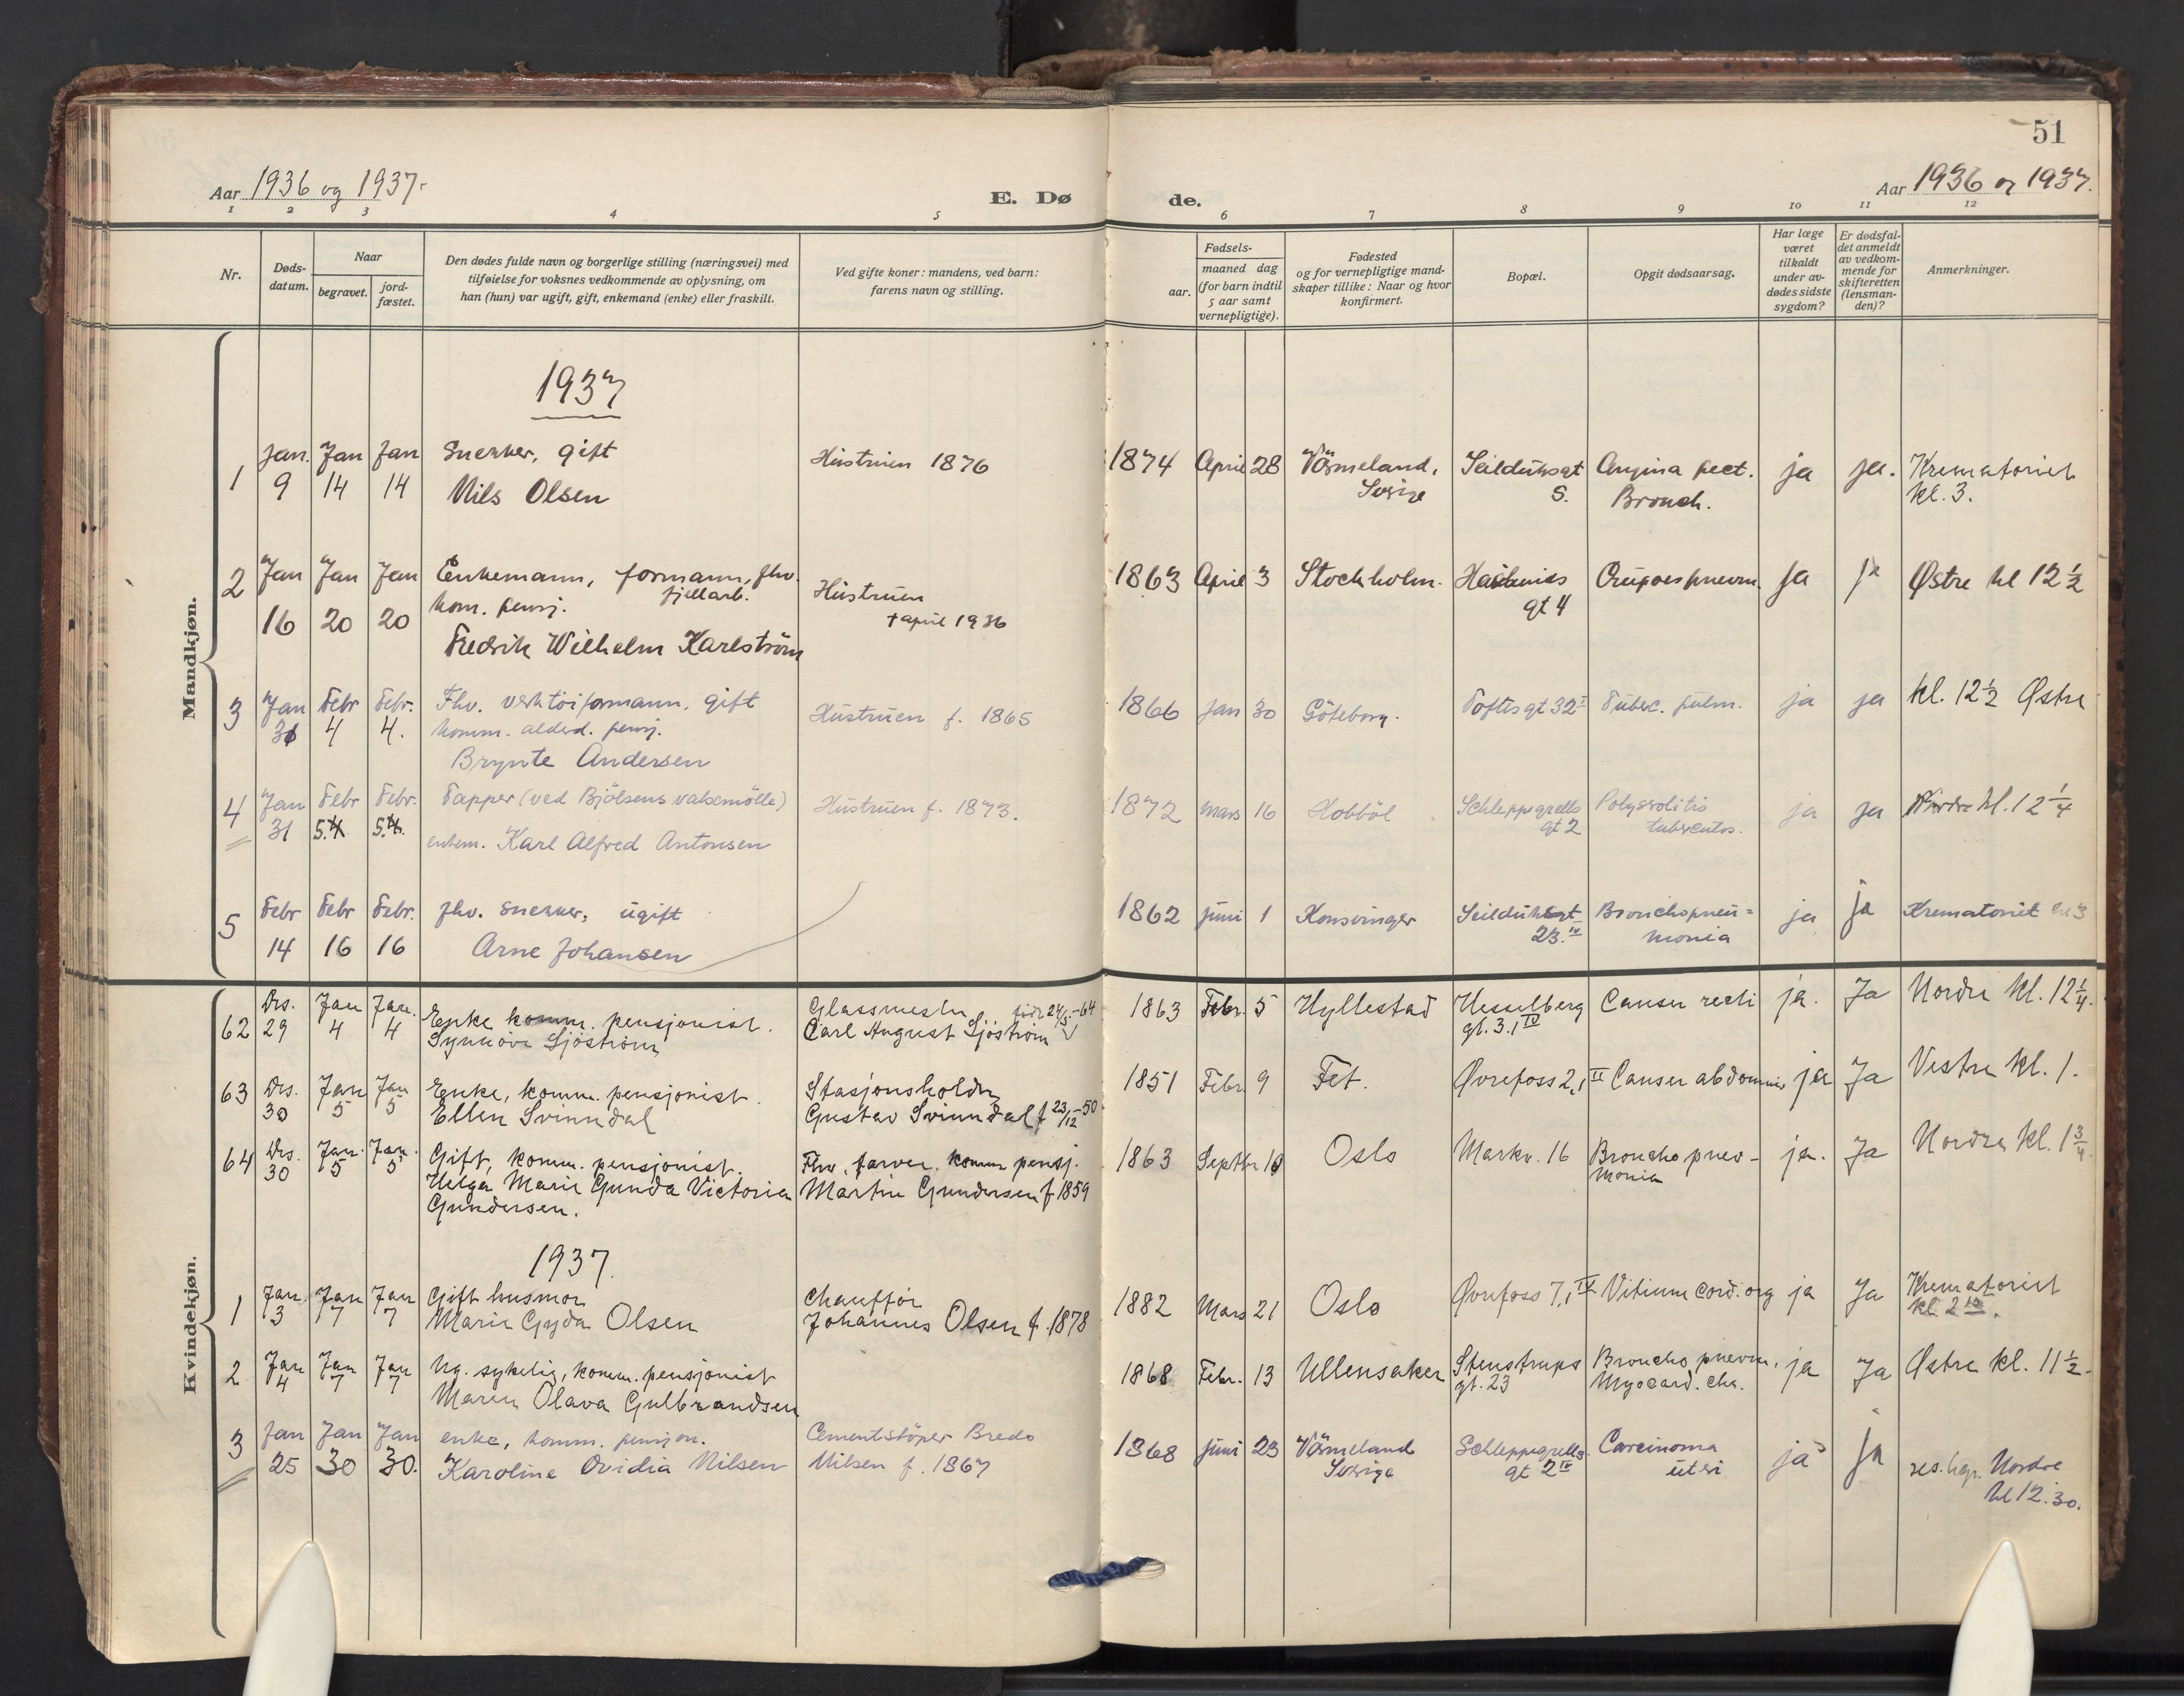 51
Aar 1936 og 1937.
E. Dø de.
Aar 1936 og 1937.
1 2 3 4 5 6 7 8 9 10 11 12
Nr.
Døds-
datum.
Naar
begravet.
jord-
fæstet.
Den dødes fulde navn og borgerlige stilling (næringsvei) med
tilføielse for voksnes vedkommende av oplysning, om
han (hun) var ugift, gift, enkemand (enke) eller fraskilt.
Ved gifte koner: mandens, ved barn:
farens navn og stilling.
Fødsels-
aar.
maaned dag
(for barn indtil
5 aar samt
vernepligtige).
Fødested
og for vernepligtige mand-
skaper tillike: Naar og hvor
konfirmert.
Bopæl.
Opgit dødsaarsag.
Har læge
været
tilkaldt
under av-
dødes sidste
sygdom?
Er dødsfal-
det anmeldt
av vedkom-
mende for
skifteretten
(lensman-
den)?
Anmerkninger.
Mandkjøn.
1937
1 Jan. 9 Jan 14 Jan 14
Snekker, gift
Nils Olsen
Hustruen 1876
1874 April 28
Värmeland,
Sverige
Seilduksgt
5.
Angina pect.
Bronch.
ja ja.
Krematoriet
kl. 3.
2 Jan 16 Jan 20 Jan 20
Enkemann, formann, fhv.
fjellarb.
kom. pensj.
Fredrik Wilhelm Karlström
Hustruen
† april 1936
1863 April 3
Stockholm.
gt 4
ja ja
Østre kl 12 1/2
3 Jan 30 Febr 4 Febr. 4.
Fhv. verktöiformann, gift
komm. alderd. pensj.
Brynte Andersen
Hustruen f. 1865
1866 Jan 30
Göteborg.
Toftes gt 32 I
Tuberc. pulm.
ja ja
kl. 12 1/2 Østre
4 Jan 31 Febr 5. 4. Febr. 5. 4.
Tapper (ved Bjölsens valsemölle)
enkem. Karl Alfred Antonsen
Hustruen f. 1873.
1872 Mars 16
Hobböl
Schleppegrells
gt 2
tuberculos.
ja ja
Nordre kl. 12 1/4
5 Febr 14 Febr 16 Febr. 16
fhv. snekker, ugift
Arne Johansen
1862 juni 1
Konsvinger
Seilduksgt
23. IV
Bronchopneu=
monia
ja ja
Krematoriet kl 3
Kvindekjøn.
62 Des. 29 Jan 4 Jan. 4
Enke komm. pensjonist.
Synnöve Sjöström
Glassmester född 24/5-64
Carl August Sjöström
1863 Febr. 5
Hyllestad
Hesselberg
gt. 3. IV
Cancer recti
ja. Ja
Nordre kl. 12 1/4.
63 Des. 30 Jan 5 Jan 5
Enke, komm. pensjonist.
Ellen Svinndal
Stasjonsholder
Gustav Svinndal f 23/12-50
1851 Febr 9
Fet.
Øvrefoss 2, II
Cancer abdominis
ja Ja
Vestre kl. 1.
64 Des. 30 Jan. 5 Jan. 5
Gift, komm. pensjonist.
Helga Marie Gunda Victoria
Gundersen.
Fhv. farver. komm pensj.
Martin Gundersen f 1859
1863 Septbr 10
Oslo
Markv. 16
Broncho pneu-
monia
ja. Ja
Nordre kl. 1 3/4
1937.
1 Jan. 3 Jan 7 Jan 7
Gift husmor
Marie Gyda Olsen
Chaufför
Johannes Olsen f. 1878
1882 Mars 21
Oslo
Øvrefoss 7, IV
Vitium cord. org
ja Ja
Krematoriet
kl. 2
2 Jan 4 Jan 7 Jan 7
Ug. sykelig, komm. pensjonist
Maren Olava Gulbrandsen
1868 Febr. 13
Ullensaker
Stenstrups
gt. 23
Broncho pneum.
Myocard. chr.
ja Ja
Østre kl. 11 1/2-
3 Jan 25 Jan 30 Jan 30.
enke, komm. pensjon.
Karoline Ovidia Nilsen
Cementstöper Bredo
Nilsen f. 1867
1868 juni 23
Värmeland
Sverige
Schleppegrells
gt 2 IV
Carcinoma
uteri
ja ja
Nordre
kl 12.30.